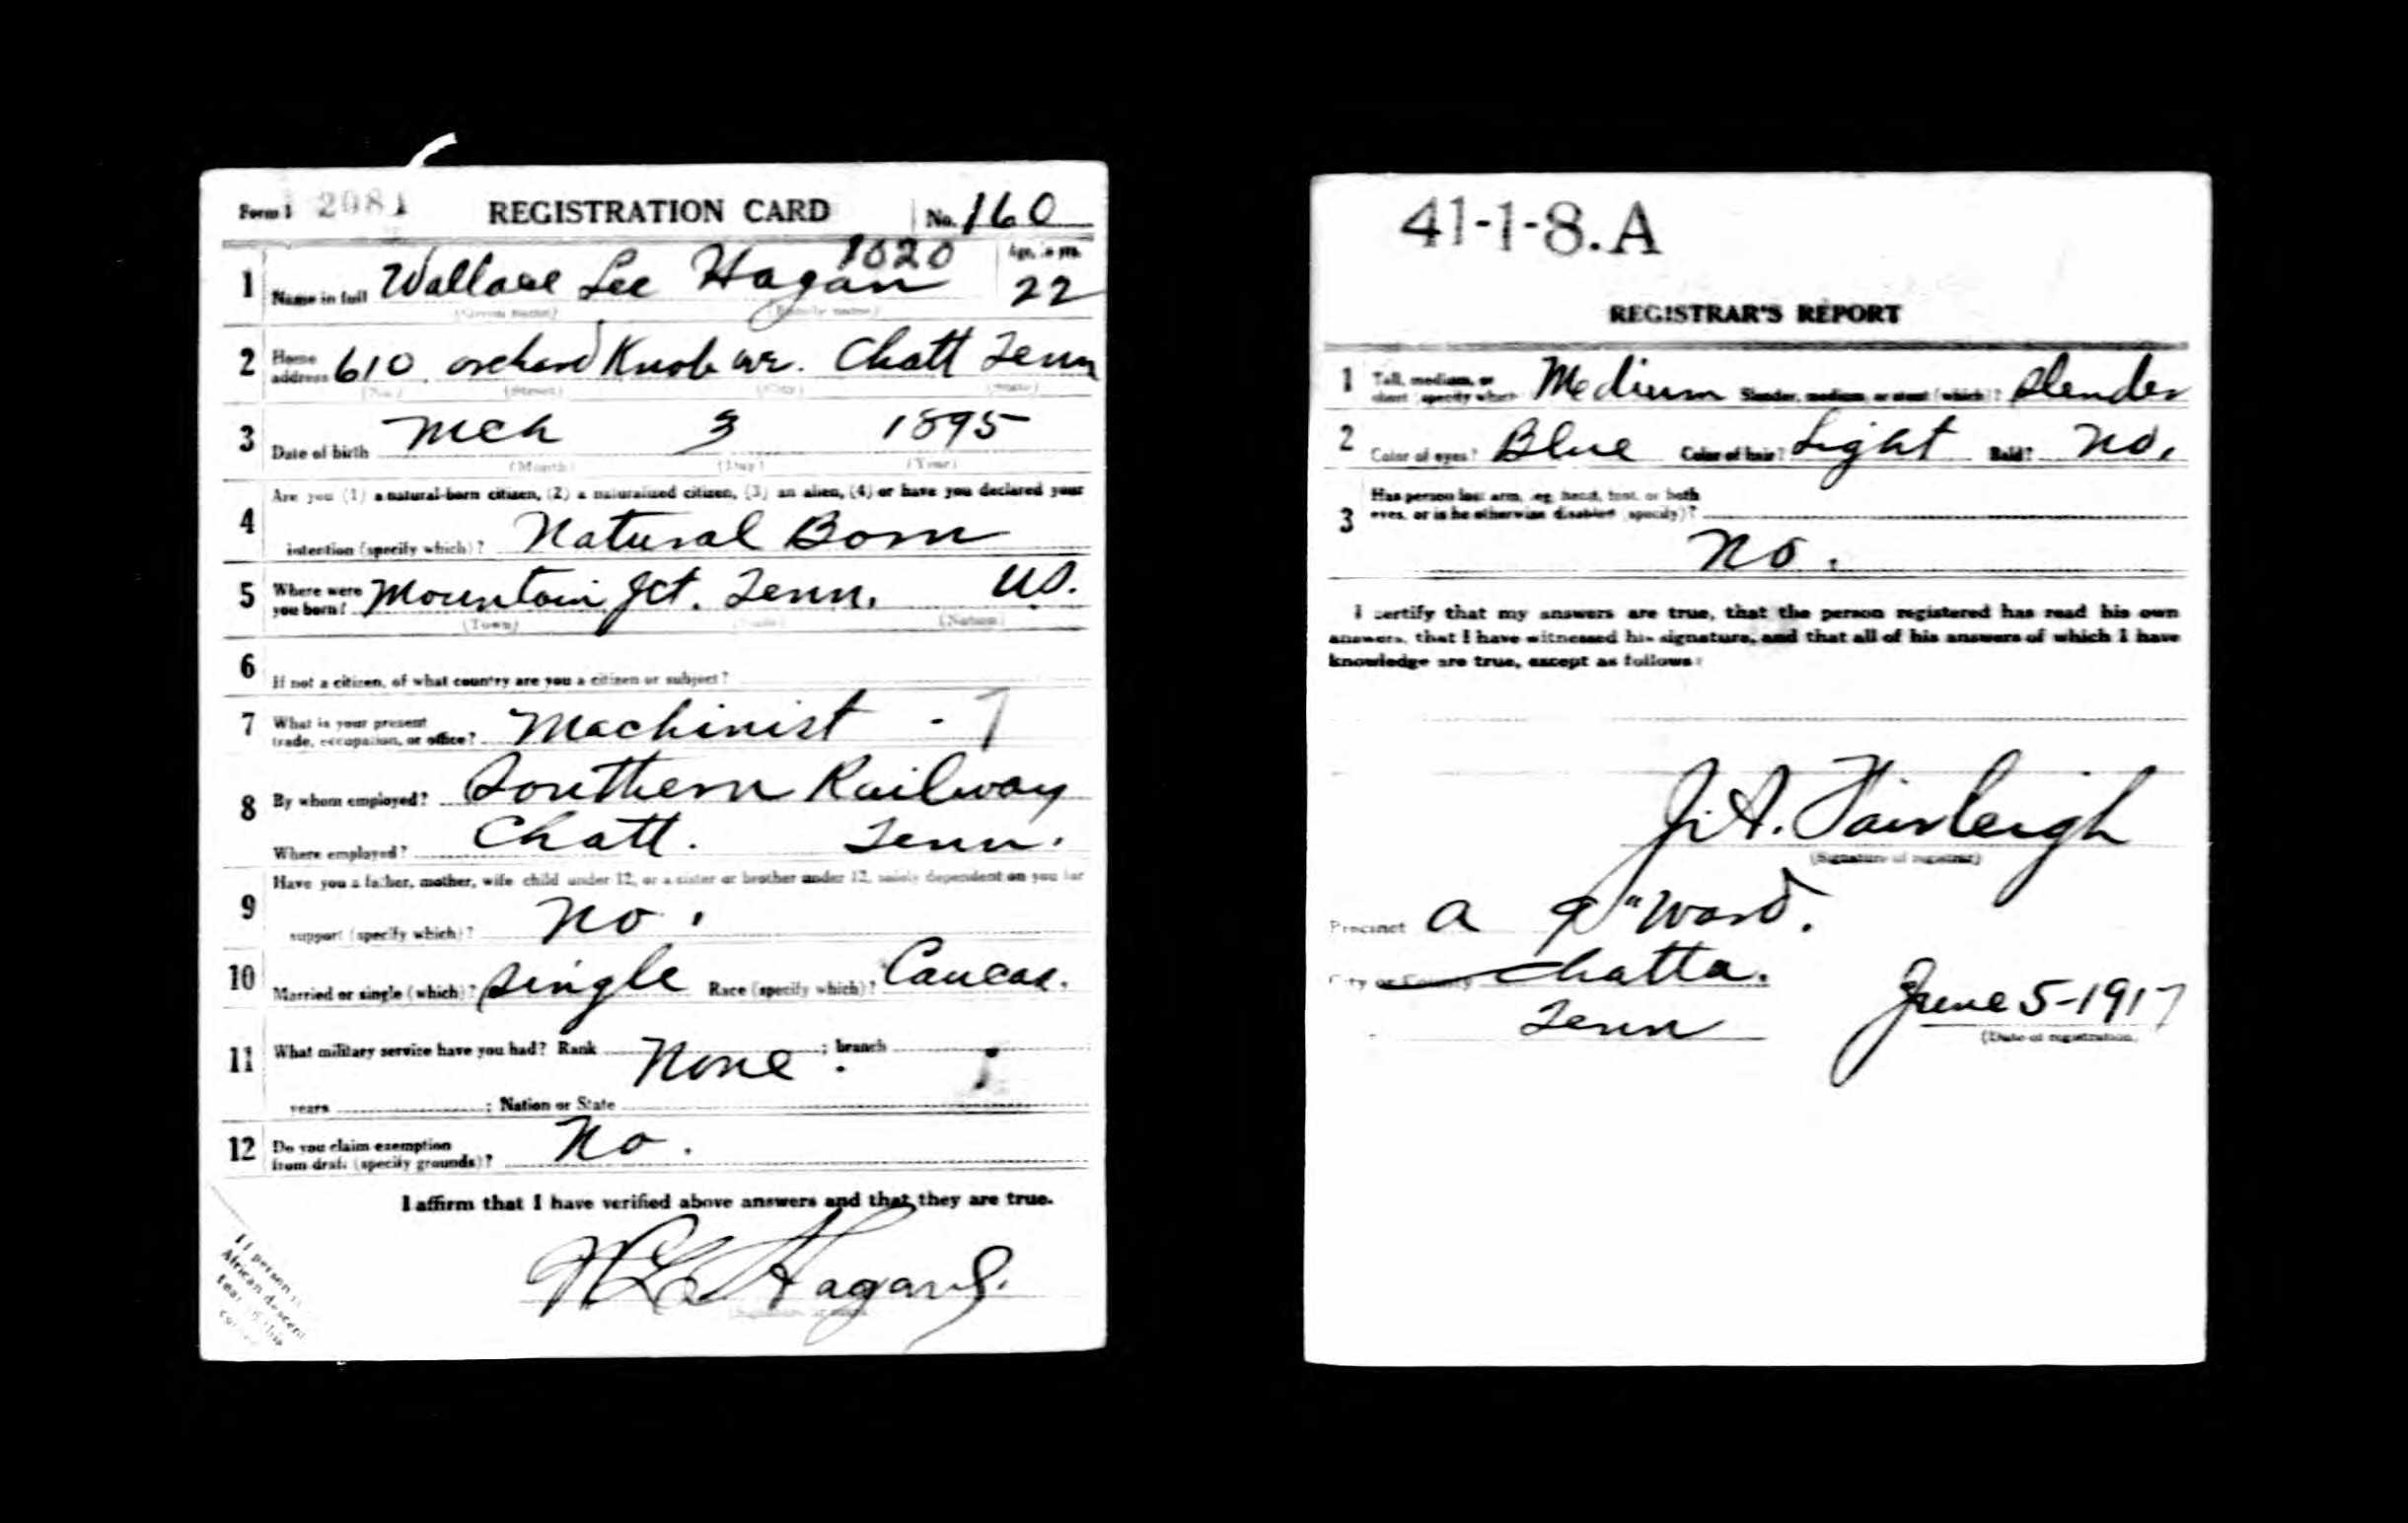 Form 1 2081 REGISTRATION CARD No. 160
1 Name in full Wallace Lee Hagan 1020 Age, in yrs. 22
(Given name) (Family name)
2 Home address 610 orchard Knob ave. Chatt Tenn
(No.) (Street) (City) (State)
3 Date of birth Mch 3 1895
(Month) (Day) (Year)
Are you (1) a natural-born citizen, (2) a naturalized citizen, (3) an alien, (4) or have you declared your
4 intention (specify which)? Natural Born
5 Where were you born? Mountain Jct. Tenn. US.
(Town) (State) (Nation)
6 If not a citizen, of what country are you a citizen or subject?
7 What is your present trade, occupation, or office? Machinist - 7
8 By whom employed? Southern Railway
Where employed? Chatt. Tenn.
Have you a father, mother, wife, child under 12, or a sister or brother under 12, solely dependent on you for
9 support (specify which)? No.
10 Married or single (which)? Single Race (specify which)? Caucas.
11 What military service have you had? Rank None. ; branch
years ; Nation or State
12 Do you claim exemption from draft (specify grounds)? No.
I affirm that I have verified above answers and that they are true.
W L Hagan
If person is
African descent
tear off this
corner
41-1-8.A
REGISTRAR'S REPORT
1 Tall, medium, or short (specify which)? Medium Slender, medium, or stout (which)? Slender
2 Color of eyes? Blue Color of hair? Light Bald? No.
Has person lost arm, leg, hand, foot, or both
3 eyes, or is he otherwise disabled (specify)?
No.
I certify that my answers are true, that the person registered has read his own
answers, that I have witnessed his signature, and that all of his answers of which I have
knowledge are true, except as follows:
J. A. Fairleigh
(Signature of registrar)
Precinct A Ward.
City or County Chatta.
Tenn June 5-1917
(Date of registration)